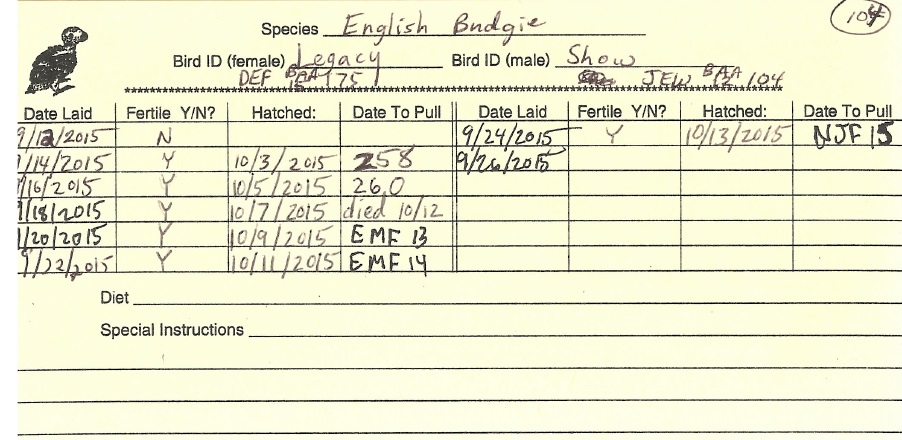 104
Species English Budgie
Bird ID (female) Legacy Bird ID (male) Show
DEF BAA 15 175 JEW BAA 12 104
Date Laid Fertile Y/N? Hatched: Date To Pull Date Laid Fertile Y/N? Hatched: Date To Pull
9/12/2015 N 9/24/2015 Y 10/13/2015 NJF 15
/14/2015 Y 10/3/2015 258 9/26/2015
/16/2015 Y 10/5/2015 260
/18/2015 Y 10/7/2015 died 10/12
/20/2015 Y 10/9/2015 EMF 13
9/22/2015 Y 10/11/2015 EMF 14
Diet
Special Instructions